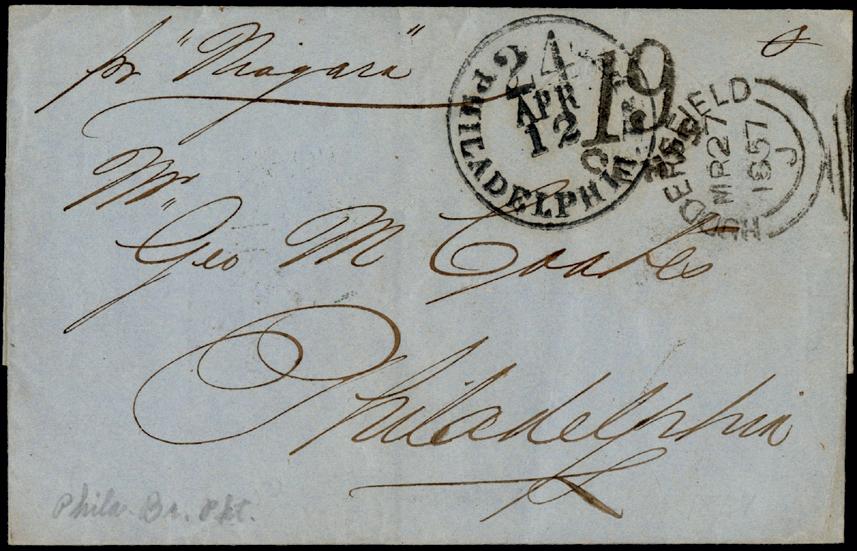 pr "Niagara"
24
APR
12
PHILADELPHIA
19
HUDDERSFIELD
MR 27
1857
J
Mr
Geo M Coates
Philadelphia
Phila. Br. Pkt.